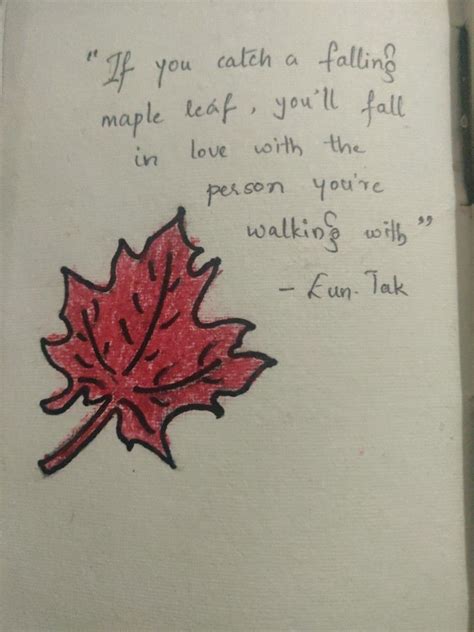 "If you catch a falling
maple leaf, you'll fall
in love with the
person you're
walking with"
- Eun-Tak